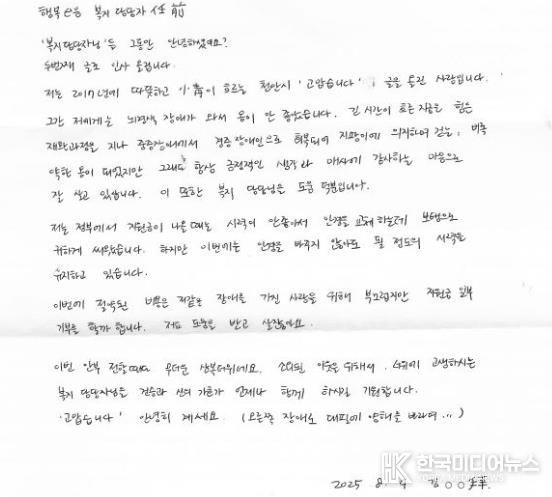 행복e음 복지 담당자 任 前
'복지담당자님'들 그동안 안녕하셨어요?
두번째 글로 인사 올립니다.
저는 2017년에 따뜻하고 小青이 흐르는 천안시 '고맙습니다' 글을 올린 사람입니다.
그간 저에게는 뇌경색 장애가 와서 몸이 안 좋았습니다. 긴 시간이 흐른 지금은 힘든
재활과정을 지나 중증장애에서 경증장애인으로 회복되어 지팡이에 의지하여 걷는, 비록
약한 몸이 되었지만 그래도 항상 긍정적인 생각과 매사에 감사하는 마음으로
잘 살고 있습니다. 이 또한 복지 담당님들 도움 덕분입니다.
저는 정부에서 지원금이 나올때는 시력이 안좋아서 안경을 교체 하는데 보탬으로
귀하게 써왔습니다. 하지만 이번에는 안경을 바꾸지 않아도 될 정도의 시력을
유지하고 있습니다.
이번에 절약된 비용은 저같은 장애를 가진 사람을 위해 부끄럽지만 지원금 일부
기부를 할까 합니다. 저도 도움을 받고 살잖아요.
이번 안부 전할때는 무더운 삼복더위에요. 소외된 이웃을 위해서, 더위에 고생하시는
복지 담당자님들 건승과 신의 가호가 언제나 함께 하시길 기원합니다.
'고맙습니다' 안녕히 계세요. (오른쪽 장애로 대필에 양해를 바라며...)
2025 8. 4 김○○ 拜.
HK 한국미디어뉴스